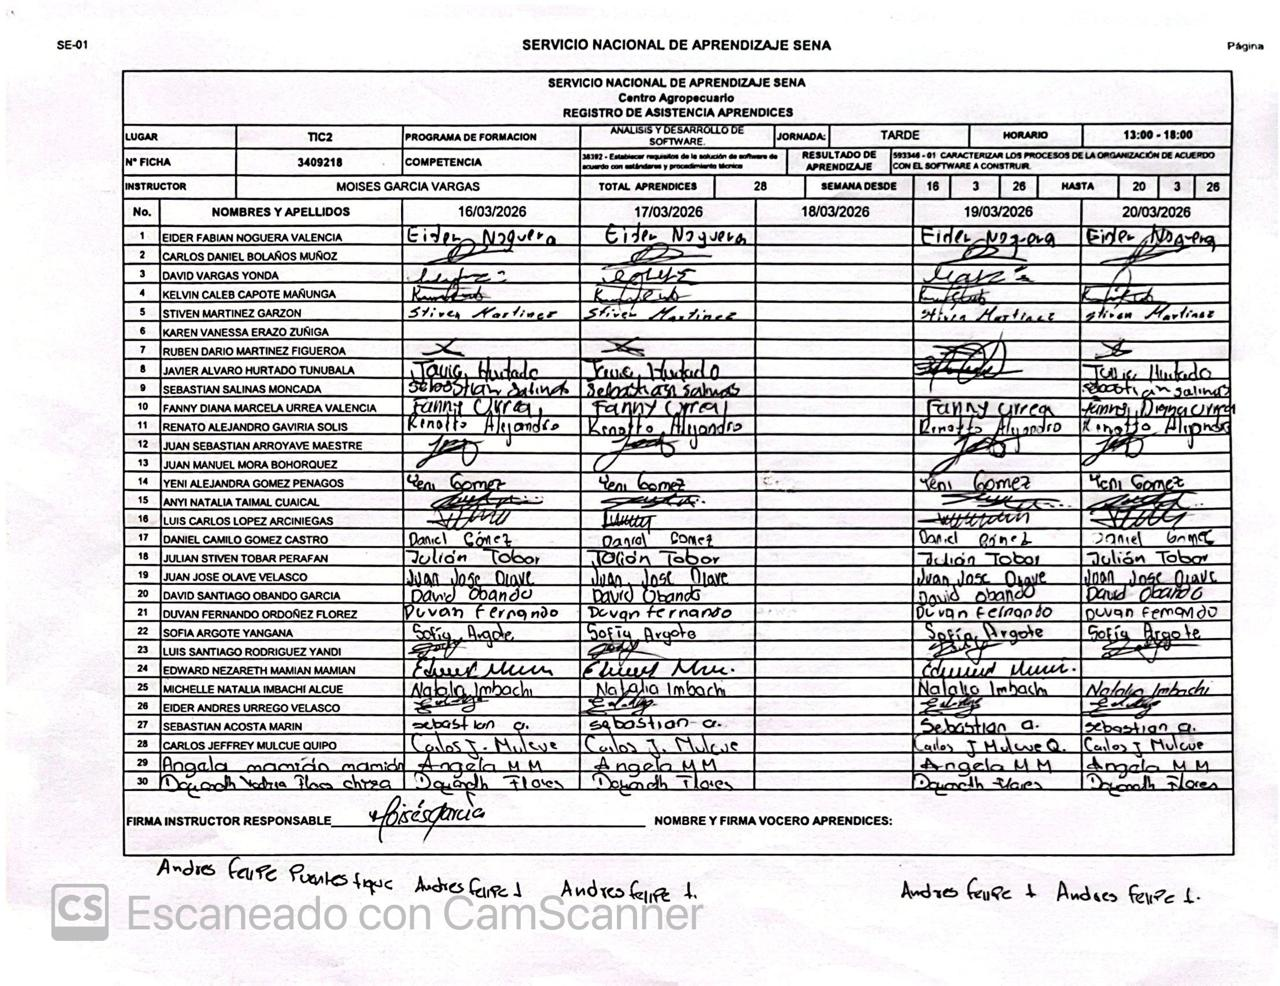 SE-01 SERVICIO NACIONAL DE APRENDIZAJE SENA Página
SERVICIO NACIONAL DE APRENDIZAJE SENA
Centro Agropecuario
REGISTRO DE ASISTENCIA APRENDICES
LUGAR TIC2 PROGRAMA DE FORMACION ANALISIS Y DESARROLLO DE SOFTWARE. JORNADA: TARDE HORARIO 13:00 - 18:00
N° FICHA 3409218 COMPETENCIA 38392 - Establecer requisitos de la solución de software de acuerdo con estándares y procedimiento técnico RESULTADO DE APRENDIZAJE 593346 - 01 CARACTERIZAR LOS PROCESOS DE LA ORGANIZACIÓN DE ACUERDO CON EL SOFTWARE A CONSTRUIR.
INSTRUCTOR MOISES GARCIA VARGAS TOTAL APRENDICES 28 SEMANA DESDE 16 3 26 HASTA 20 3 26
No. NOMBRES Y APELLIDOS 16/03/2026 17/03/2026 18/03/2026 19/03/2026 20/03/2026
1 EIDER FABIAN NOGUERA VALENCIA Eider Noguera Eider Noguera Eider Noguera Eider Noguera
2 CARLOS DANIEL BOLAÑOS MUÑOZ
3 DAVID VARGAS YONDA
4 KELVIN CALEB CAPOTE MAÑUNGA
5 STIVEN MARTINEZ GARZON Stiven Martinez Stiven Martinez Stiven Martinez Stiven Martinez
6 KAREN VANESSA ERAZO ZUÑIGA
7 RUBEN DARIO MARTINEZ FIGUEROA
8 JAVIER ALVARO HURTADO TUNUBALA Javier Hurtado Javier Hurtado Javier Hurtado
9 SEBASTIAN SALINAS MONCADA Sebastian Salinas Sebastian Salinas Sebastian salinas
10 FANNY DIANA MARCELA URREA VALENCIA Fanny Urrea Fanny Urrea Fanny Urrea Fanny Diana Urrea
11 RENATO ALEJANDRO GAVIRIA SOLIS Renatto Alejandro Renatto Alejandro Renatto Alejandro Renatto Alejandro
12 JUAN SEBASTIAN ARROYAVE MAESTRE
13 JUAN MANUEL MORA BOHORQUEZ
14 YENI ALEJANDRA GOMEZ PENAGOS Yeni Gomez Yeni Gomez Yeni Gomez Yeni Gomez
15 ANYI NATALIA TAIMAL CUAICAL
16 LUIS CARLOS LOPEZ ARCINIEGAS
17 DANIEL CAMILO GOMEZ CASTRO Daniel Gómez Daniel Gomez Daniel Gómez Daniel Gomez
18 JULIAN STIVEN TOBAR PERAFAN Julián Tobar Julián Tobar Julián Tobar Julián Tobar
19 JUAN JOSE OLAVE VELASCO Juan Jose Olave Juan Jose Olave Juan Jose Olave Juan Jose Olave
20 DAVID SANTIAGO OBANDO GARCIA David Obando David Obando David Obando David Obando
21 DUVAN FERNANDO ORDOÑEZ FLOREZ Duvan Fernando Duvan fernando Duvan Fernando Duvan Fernando
22 SOFIA ARGOTE YANGANA Sofía Argote Sofía Argote Sofía Argote Sofía Argote
23 LUIS SANTIAGO RODRIGUEZ YANDI
24 EDWARD NEZARETH MAMIAN MAMIAN
25 MICHELLE NATALIA IMBACHI ALCUE Natalia Imbachi Natalia Imbachi Natalia Imbachi Natalia Imbachi
26 EIDER ANDRES URREGO VELASCO
27 SEBASTIAN ACOSTA MARIN sebastian a. sabastian a. Sebastian a. sebastian a.
28 CARLOS JEFFREY MULCUE QUIPO Carlos J. Mulcue Carlos J. Mulcue Carlos J Mulcue Q. Carlos J Mulcue
29 Angela mamián mamián Angela MM Angela MM Angela MM Angela MM
30 Flores Flores Flores Flores
FIRMA INSTRUCTOR RESPONSABLE Moisés García NOMBRE Y FIRMA VOCERO APRENDICES:
Andres Felipe Puentes tique Andres Felipe Andres Felipe Andres Felipe Andres Felipe
CS Escaneado con CamScanner